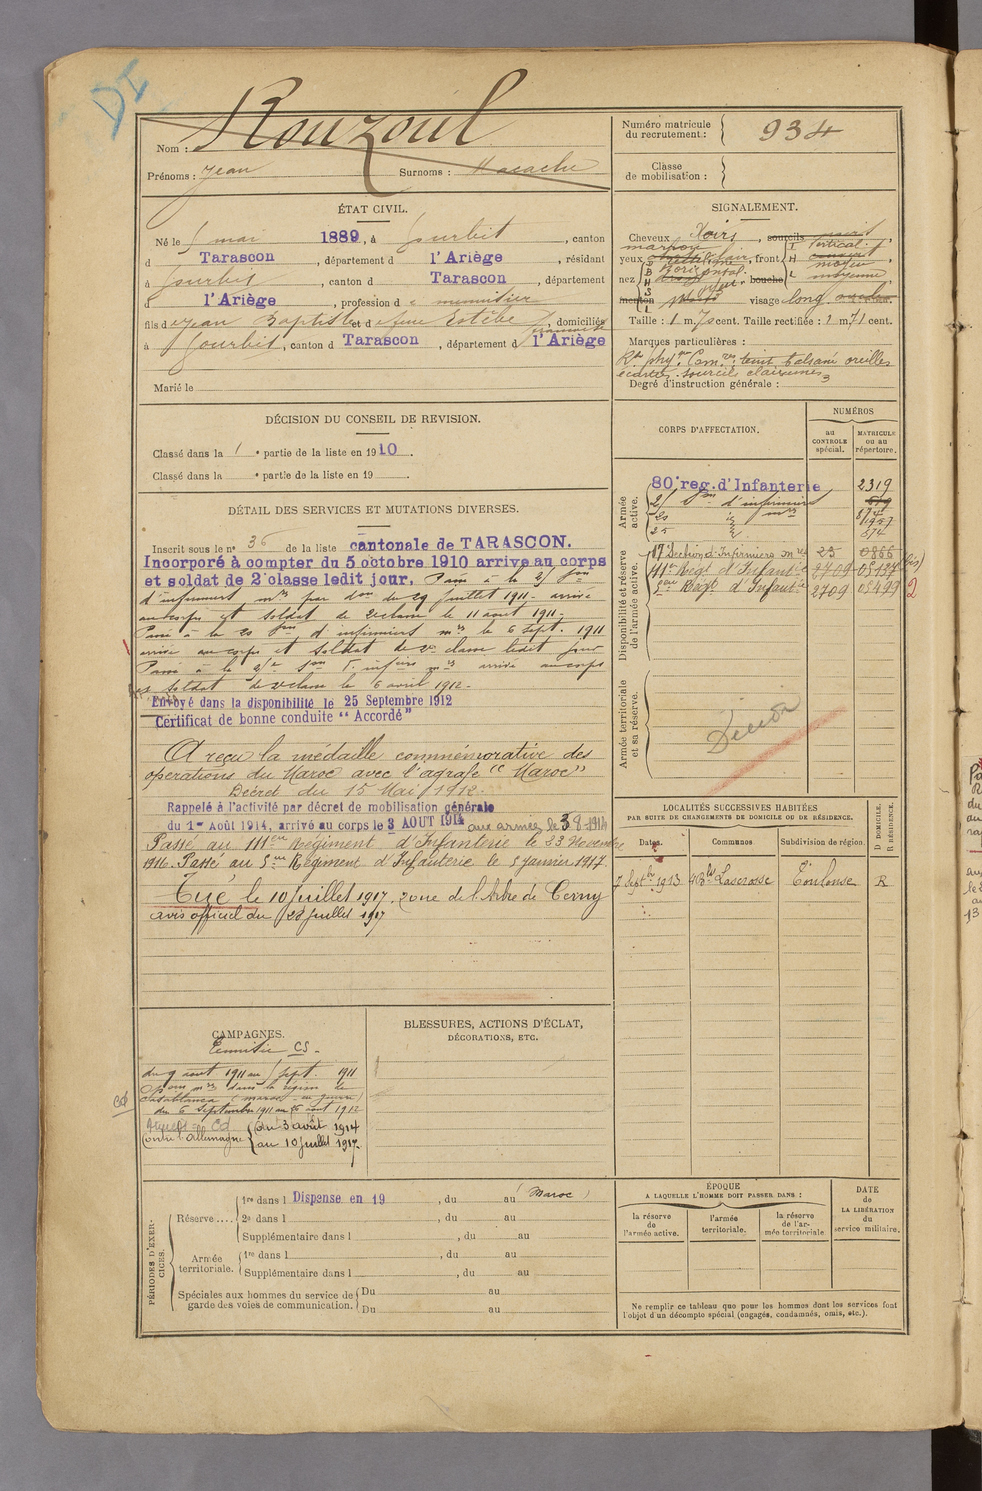 DI
Nom : Rouzoul
Prénoms : Jean Surnoms :
Numéro matricule du recrutement : 934
Classe de mobilisation :
ÉTAT CIVIL.
Né le mai 1889, à Gourbit, canton
d Tarascon, département d l'Ariège, résidant
à Gourbit, canton d Tarascon, département
d l'Ariège, profession d menuisier
fils d e Jean Baptiste et d e Estèbe, domiciliés
à Gourbit, canton d Tarascon, département d l'Ariège
Marié le
SIGNALEMENT.
Cheveux Noirs, sourcils noirs
marron
yeux, front vertical
nez, bouche moyenne
menton visage long
Taille : 1 m. 70 cent. Taille rectifiée : 1 m. 71 cent.
Marques particulières :
teint basané oreilles
écartées. sourcils clairsemés
Degré d'instruction générale : 3
DÉCISION DU CONSEIL DE REVISION.
Classé dans la 1e partie de la liste en 1910.
Classé dans la e partie de la liste en 19
DÉTAIL DES SERVICES ET MUTATIONS DIVERSES.
Inscrit sous le no 36 de la liste cantonale de TARASCON.
Incorporé à compter du 5 octobre 1910 arrive au corps
et soldat de 2e classe ledit jour. Passé à la
d'infirmiers mres par don du 29 juillet 1911 - arrivé
au corps et soldat de 2e classe le 11 aout 1911 -
Passé à la d'infirmiers mres le 6 sept. 1911
arrivé au corps et soldat de 2e classe ledit jour
Passé à la arrivé au corps
et soldat de 2e classe le 6 avril 1912 -
Envoyé dans la disponibilité le 25 Septembre 1912
Certificat de bonne conduite "Accordé"
A reçu la médaille commémorative des
opérations du Maroc avec l'agrafe "Maroc"
Décret du 15 Mai 1912.
Rappelé à l'activité par décret de mobilisation générale
du 1er Août 1914, arrivé au corps le 3 AOUT 1914 aux armées le 3-8-1914
Passé au 111eme Régiment d'Infanterie le 23 Novembre
1916. Passé au 5me Régiment d'Infanterie le 5 janvier 1917.
Tué le 10 juillet 1917, zone de l'Arbre de Cerny
avis officiel du 28 juillet 1917
CORPS D'AFFECTATION.
NUMÉROS
au CONTROLE spécial.
MATRICULE ou au répertoire.
Armée active.
80e reg. d'Infanterie 2319
d'infirmiers mres
Disponibilité et réserve de l'armée active.
17 Section d'Infirmiers mres 25 0866
111e Régt d'Infantie 2709 (bis)
5eme Régt d'Infantie 2709 05499 2
Armée territoriale et sa réserve.
LOCALITÉS SUCCESSIVES HABITÉES
PAR SUITE DE CHANGEMENTS DE DOMICILE OU DE RÉSIDENCE.
Dates. Communes Subdivision de région. D DOMICILE. R RÉSIDENCE.
7 Septbre 1913 Lascrosse Toulouse R
CAMPAGNES.
Tunisie CS -
du 9 aout 1911 au sept. 1911
dans la région de
Casablanca (maroc - en guerre)
du 6 Septembre 1911 au aout 1912
Cd
contre l'Allemagne
du 3 août 1914
au 10 juillet 1917.
BLESSURES, ACTIONS D'ÉCLAT,
DÉCORATIONS, ETC.
PÉRIODES D'EXERCICES.
Réserve .... 1re dans l Dispense en 19, du au (Maroc)
2e dans l, du au
Supplémentaire dans l, du au
Armée territoriale. 1re dans l, du au
Supplémentaire dans l, du au
Spéciales aux hommes du service de garde des voies de communication. Du au
Du au
ÉPOQUE
A LAQUELLE L'HOMME DOIT PASSER DANS :
la réserve de l'armée active.
l'armée territoriale.
la réserve de l'armée territoriale
DATE de LA LIBÉRATION du service militaire.
Ne remplir ce tableau que pour les hommes dont les services font
l'objet d'un décompte spécial (engagés, condamnés, omis, etc.).